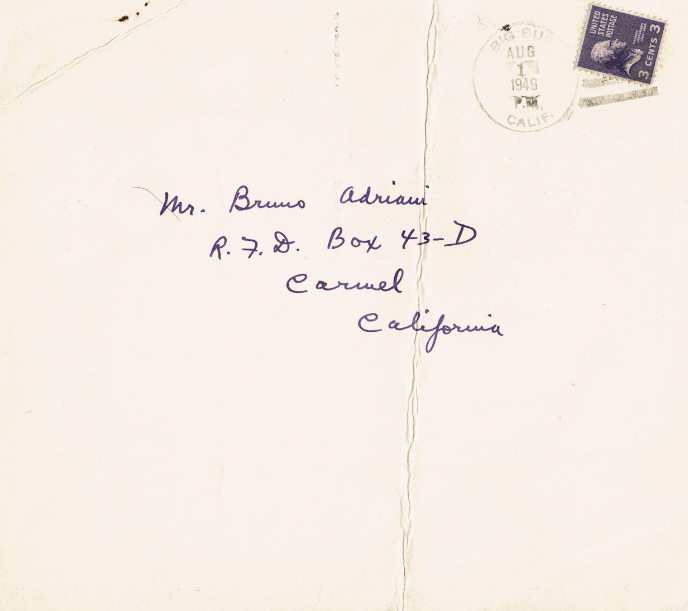 BIG SUR
AUG
1
1949
P.M.
CALIF.
UNITED
STATES
POSTAGE
3 CENTS 3
Mr. Bruno Adriani
R.F.D. Box 43-D
Carmel
California